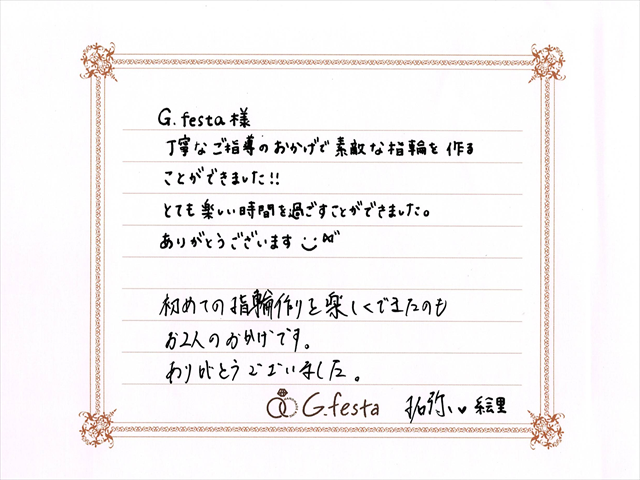 G.festa 様
丁寧なご指導のおかげで素敵な指輪を作る
ことができました!!
とても楽しい時間を過ごすことができました。
ありがとうございます
初めての指輪作りを楽しくできたのも
お2人のおかげです。
ありがとうございました。
G.festa 拓弥 ♥ 絵里